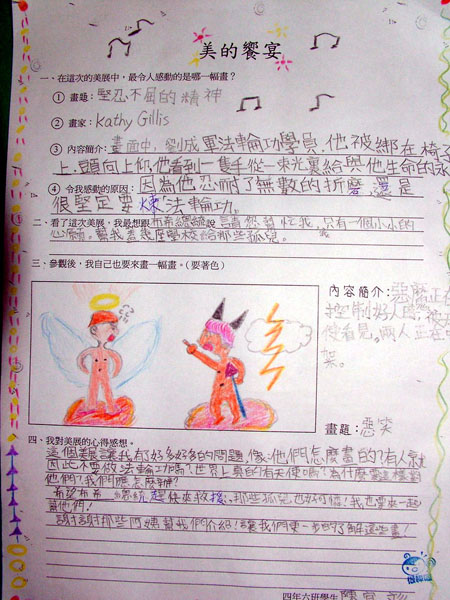 美的饗宴
一、在這次的美展中，最令人感動的是哪一幅畫？
① 畫題：堅忍不屈的精神
② 畫家：Kathy Gillis
③ 內容簡介：畫面中，劉成軍法輪功學員，他被綁在椅子
上，頭向上仰，他看到一隻手從一束光裏給與他生命的永
④ 令我感動的原因：因為他忍耐了無數的折磨還是
很堅定要煉法輪功。
二、看了這次美展，我最想跟布希總統說 請您幫忙我，只有一個小小的
心願。幫我蓋幾座學校給那些孤兒。
三、參觀後，我自己也要來畫一幅畫。(要著色)
內容簡介：惡魔正在
控制好人
使看見。兩人正在
架。
畫題：
四、我對美展的心得感想。
這個美展讓我有了好多好多的問題，像：他們怎麼畫的？有人就
因此不要做法輪功嗎？世界上真的有天使嗎？為什麼要這樣對
他們？我們應怎麼辦？
希望布希總統趕快來救援，那些孤兒也好可憐！我也要來一起
幫他們！
謝謝那些阿姨幫我們介紹！讓我們更一步的了解這些畫！
四年六班學生